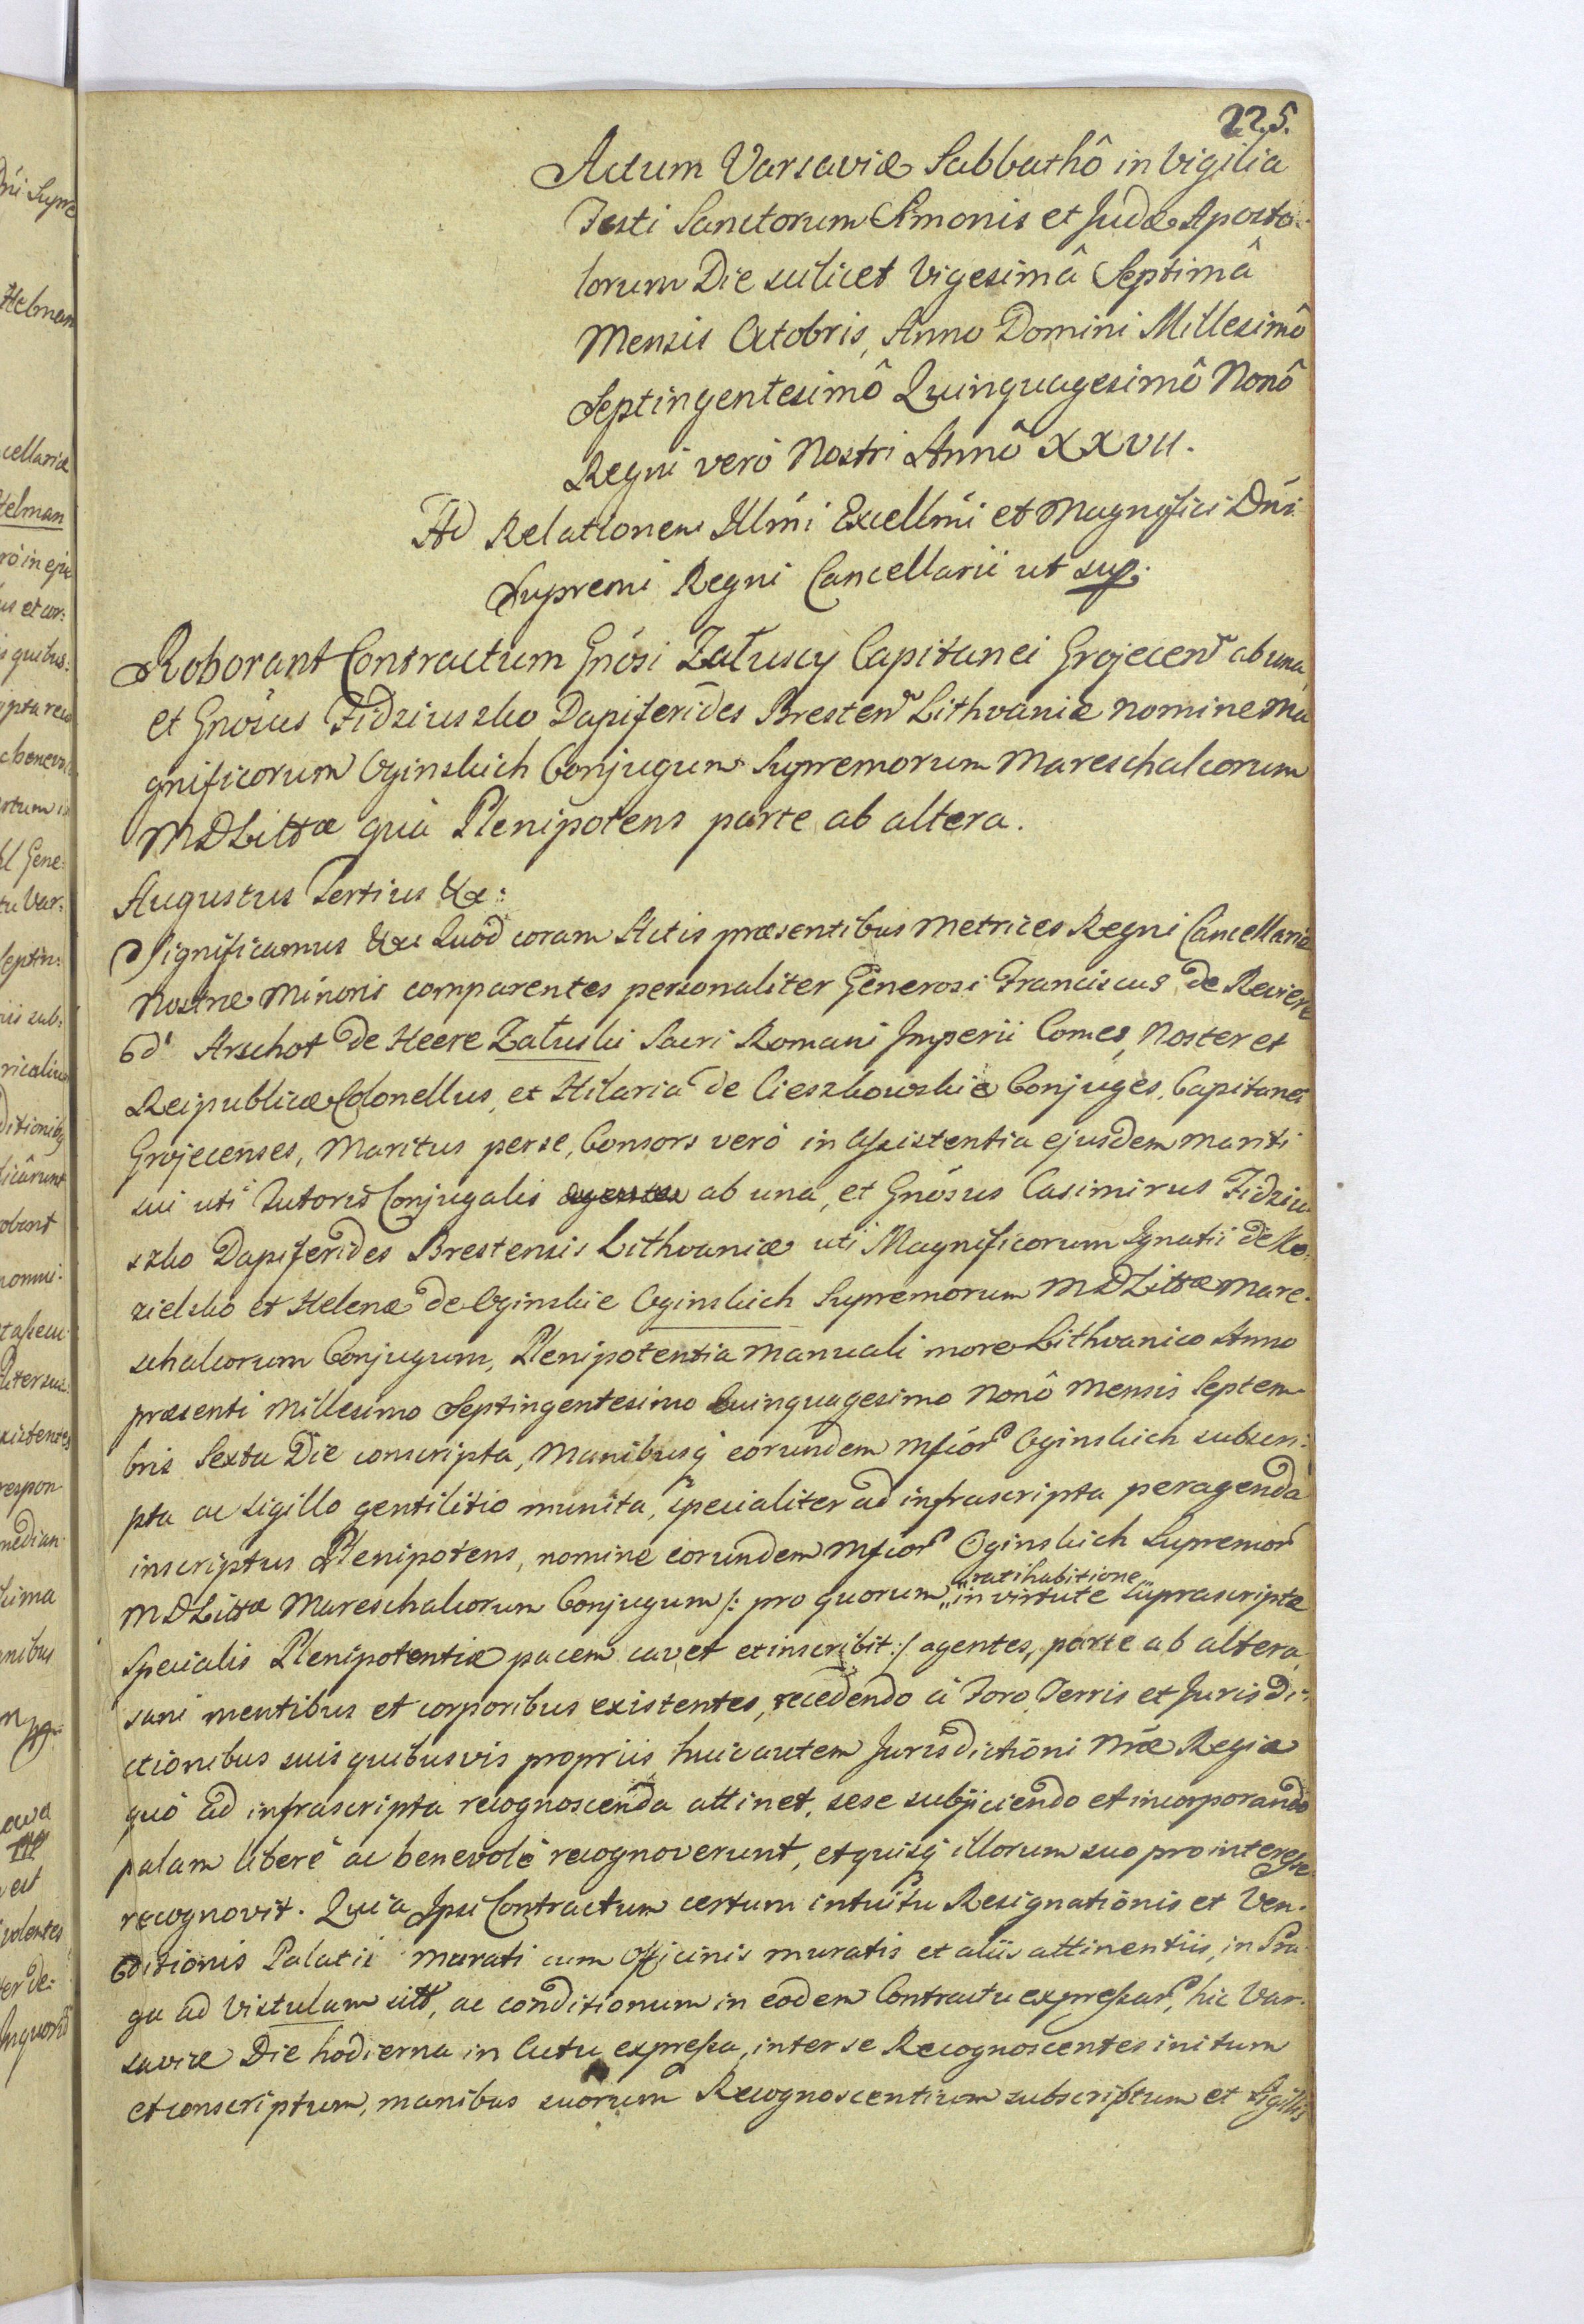 225.
Actum Varsaviæ Sabbathô in Vigilia
Festi Sanctorum Simonis et Judæ Aposto:
lorum Die scilicet Vigesimâ Septimâ
Mensis Octobris, Anno Domini Millesimô
Septingentesimô Quinquagesimô Nonô
Regni verò Nostri Annô XXVII.
Ad Relationem Illmi Excellmi et Magnifici Dni
Supremi Regni Cancellarii ut sup:
Roborant Contractum Gnosi Załuscy Capitanei Grojecen ab una,
et Gnosus Fidziuszko Dapiferides Bresten Lithvaniæ nomine Ma
gnificorum Oginskich Conjugum Supremorum Mareschalcorum
MDLittæ quà Plenipotens parte ab altera.
Augustus Tertius &a:
Significamus &a Quod coram Actis præsentibus Metrices Regni Cancellariæ
Nostræ Minoris comparentes personaliter Generosi Franciscus de Reviere
d' Arschot de Heere Załuski Sacri Romani Imperii Comes, Noster et
Reipublicæ Colonellus, et Hilaria de Cieszkowskie Conjuges, Capitanei
Grojecenses, Maritus per se, Consors verò in Assistentia ejusdem Mariti
sui uti Tutoris Conjugalis agentes ab una, et Gnosus Casimirus Fidziu
szko Dapiferides Brestensis Lithvaniæ uti Magnificorum Ignatii de Ko:
zielsko et Helenæ de Oginskie Oginskich Supremorum MDLittæ Mare:
schalcorum Conjugum, Plenipotentia Manuali more Lithvanico Anno
præsenti Millesimo Septingentesimo Quinquagesimo Nonô Mensis Septem
bris Sexta Die conscripta, Manibusq eorundem Mficor Oginskich subscri:
pta ac sigillo gentilitio munita, specialiter ad infrascripta peragenda
inscriptus Plenipotens, nomine eorundem Mficor Oginskich Supremor
ratihabitione
MDLittæ Mareschalcorum Conjugum /: pro quorum „ in virtute suprascriptæ
Specialis Plenipotentiæ pacem cavet et inscribit :/ agentes, parte ab altera,
sani mentibus et corporibus existentes, recedendo à Foro Terris et Jurisdi:
ctionibus suis quibusvis propriis, huic autem Jurisdictioni Nræ Regiæ
quò ad infrascripta recognoscenda attinet, sese subjiciendo et incorporando
palam liberè ac benevolè recognoverunt, et quisq illorum suo pro interesse
recognovit. Quia Ipsi Contractum certum intuitu Resignationis et Ven:
ditionis Palatii murati cum Officinis muratis et aliis attinentiis, in Pra
ga ad Vistulam sitt, ac conditionum in eodem Contractu expressar, hic Var
saviæ Die hodierna in Actu expressa, inter se Recognoscentes initum
et conscriptum, manibus suorum Recognoscentium subscriptum et Sigillis